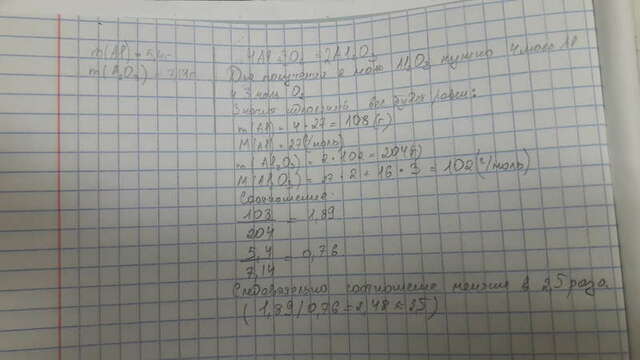 m(Al) = 5,4г
m(Al₂O₃) = 7,14г
4Al + 3O₂ = 2Al₂O₃
Для получения 2 моль Al₂O₃ нужно 4 моль Al
и 3 моль O₂
Значит отношение будут равен:
m(Al) = 4 · 27 = 108 (г)
M(Al) = 27 (г/моль)
m(Al₂O₃) = 2 · 102 = 204 г)
M(Al₂O₃) = 27 · 2 + 16 · 3 = 102 (г/моль)
Соотношение:
108/204 = 1,89
5,4/7,14 = 0,76
Следовательно соотношение меньше в 2,5 раза
(1,89/0,76 = 2,48 ≈ 25)